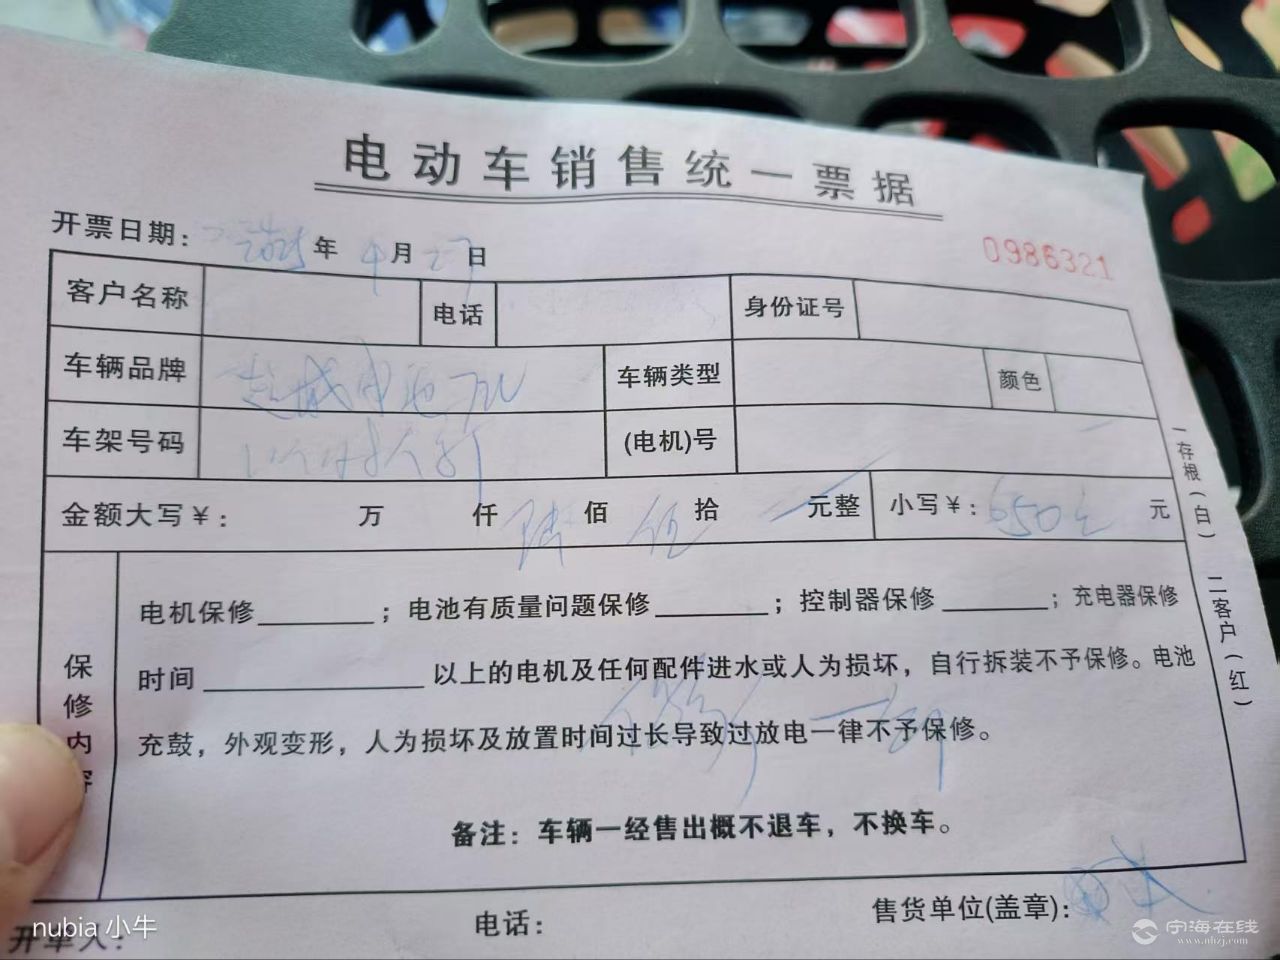 电动车销售统一票据
开票日期: 2025年 4月 27日
0986321
客户名称 电话 身份证号
车辆品牌 超威电池 车辆类型 颜色
车架号码 (电机)号
金额大写￥: 万 仟 陆 佰 伍 拾 元整 小写￥: 650元 元
保修内容
电机保修______; 电池有质量问题保修______; 控制器保修______; 充电器保修
时间______以上的电机及任何配件进水或人为损坏，自行拆装不予保修。电池
充鼓，外观变形，人为损坏及放置时间过长导致过放电一律不予保修。
备注：车辆一经售出概不退车，不换车。
一存根(白) 二客户(红)
开单人: 电话: 售货单位(盖章):
nubia 小牛
宁海在线
www.nhzj.com